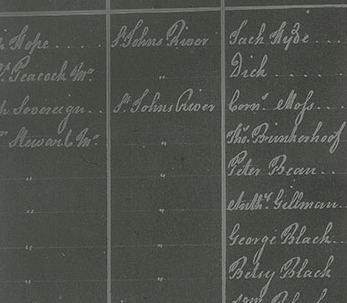 Hope St Johns River Zach Hyde
Peacock Mr " Dick
Sovereign St Johns River Corns Moss
Stewart Mr " Thos Brinkerhoof
" Peter Bean
" Anthy Gillman
" George Black
" Betsy Black
" Black